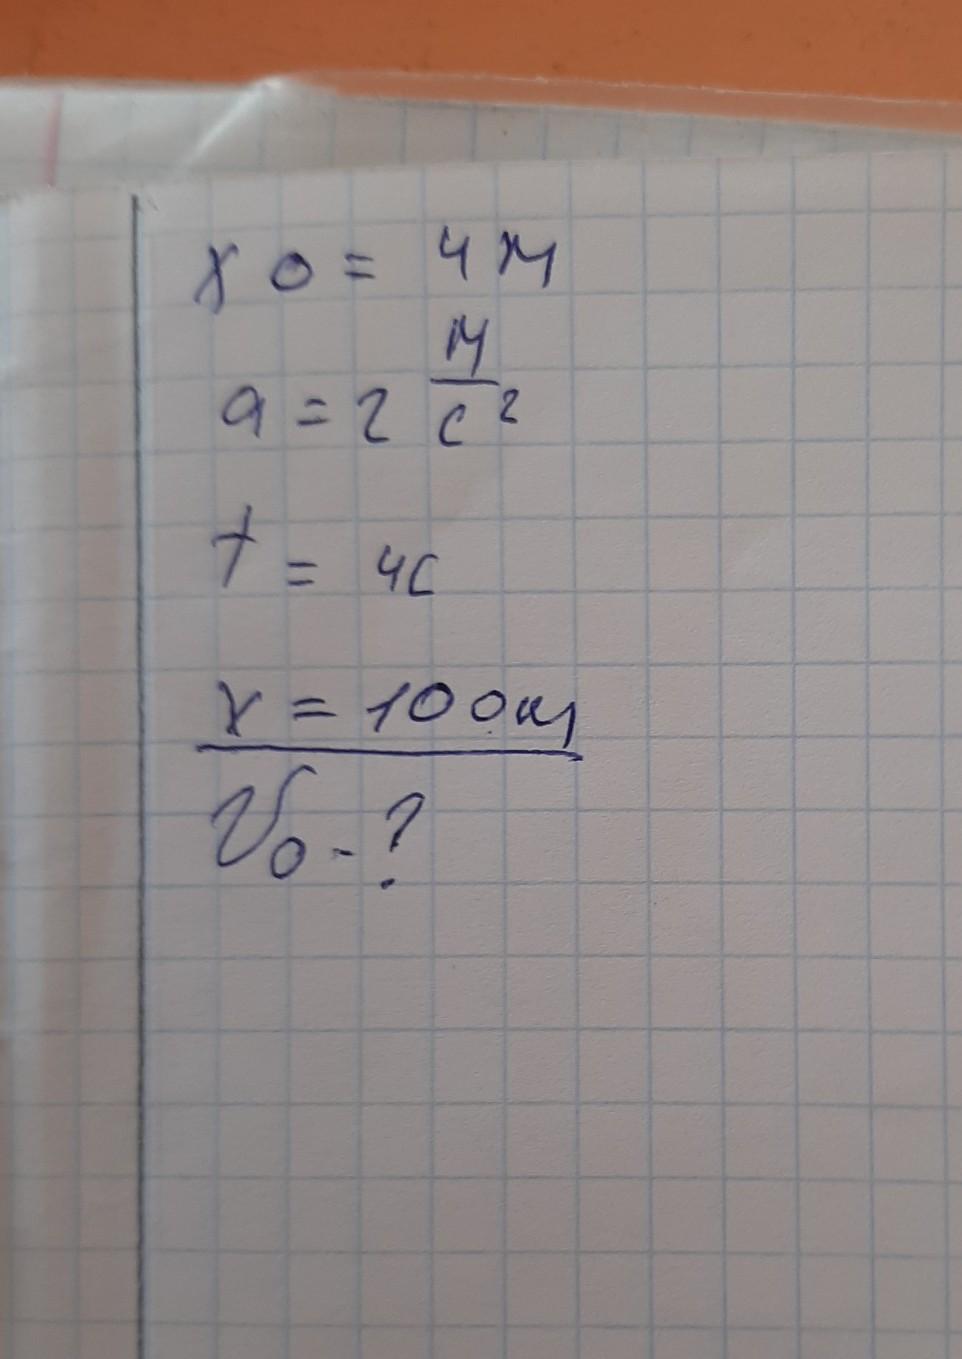 x0 = 4м
a = 2 м/с²
t = 4с
x = 100м
V₀ - ?